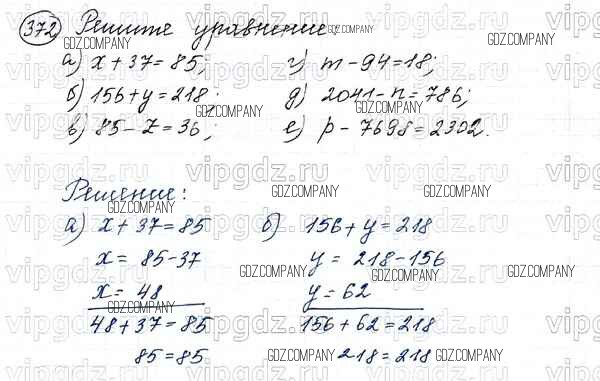 372 Решите уравнение
а) x + 37 = 85; г) m - 94 = 18;
б) 156 + y = 218; д) 2041 - n = 786;
в) 85 - z = 36; е) p - 7698 = 2302.
Решение:
а) x + 37 = 85 б) 156 + y = 218
x = 85 - 37 y = 218 - 156
x = 48 y = 62
48 + 37 = 85 156 + 62 = 218
85 = 85 218 = 218
vipgdz.ru
GDZ.COMPANY